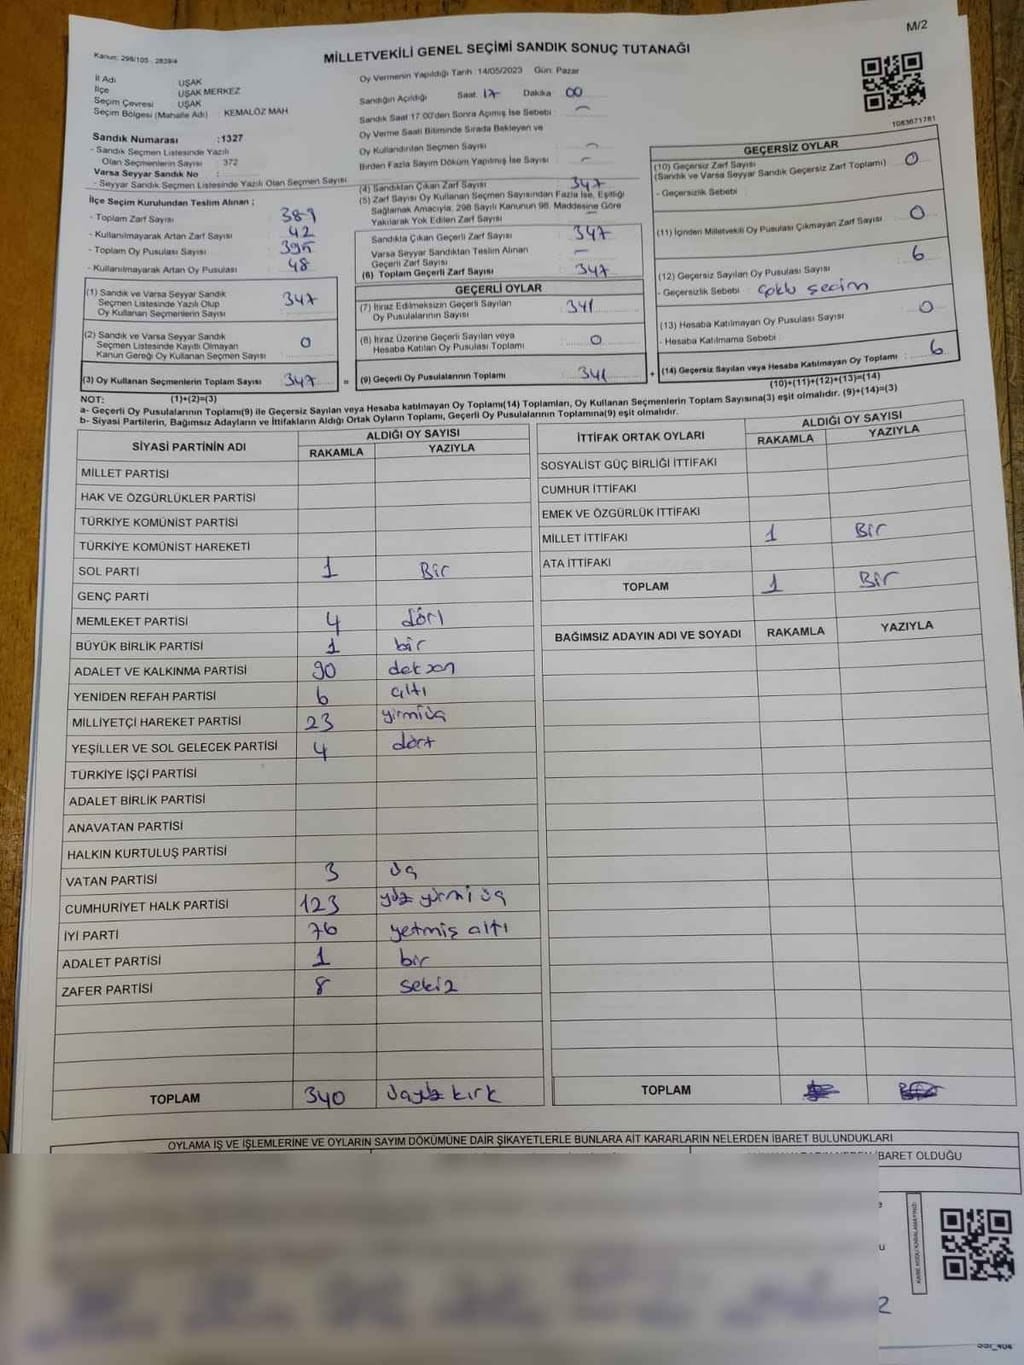 M/2
Kanun: 298/105 - 2839/4
MİLLETVEKİLİ GENEL SEÇİMİ SANDIK SONUÇ TUTANAĞI
İl Adı UŞAK
İlçe UŞAK MERKEZ
Seçim Çevresi UŞAK
Seçim Bölgesi (Mahalle Adı) : KEMALÖZ MAH
Sandık Numarası :1327
- Sandık Seçmen Listesinde Yazılı
Olan Seçmenlerin Sayısı : 372
Varsa Seyyar Sandık No :
- Seyyar Sandık Seçmen Listesinde Yazılı Olan Seçmen Sayısı
İlçe Seçim Kurulundan Teslim Alınan ;
- Toplam Zarf Sayısı 389
- Kullanılmayarak Artan Zarf Sayısı 42
- Toplam Oy Pusulası Sayısı 395
- Kullanılmayarak Artan Oy Pusulası 48
(1) Sandık ve Varsa Seyyar Sandık
Seçmen Listesinde Yazılı Olup
Oy Kullanan Seçmenlerin Sayısı 347
(2) Sandık ve Varsa Seyyar Sandık
Seçmen Listesinde Kayıtlı Olmayan
Kanun Gereği Oy Kullanan Seçmen Sayısı 0
(3) Oy Kullanan Seçmenlerin Toplam Sayısı 347 =
(1)+(2)=(3)
Oy Vermenin Yapıldığı Tarih :14/05/2023 Gün: Pazar
Sandığın Açıldığı Saat: 17 Dakika 00
Sandık Saat 17.00'den Sonra Açılmış İse Sebebi
Oy Verme Saati Bitiminde Sırada Bekleyen ve
Oy Kullandırılan Seçmen Sayısı
Birden Fazla Sayım Döküm Yapılmış İse Sayısı
(4) Sandıktan Çıkan Zarf Sayısı 347
(5) Zarf Sayısı Oy Kullanan Seçmen Sayısından Fazla İse, Eşitliği
Sağlamak Amacıyla, 298 Sayılı Kanunun 98. Maddesine Göre
Yakılarak Yok Edilen Zarf Sayısı
Sandıkta Çıkan Geçerli Zarf Sayısı 347
Varsa Seyyar Sandıktan Teslim Alınan
Geçerli Zarf Sayısı
(6) Toplam Geçerli Zarf Sayısı 347
GEÇERLİ OYLAR
(7) İtiraz Edilmeksizin Geçerli Sayılan
Oy Pusulalarının Sayısı 341
(8) İtiraz Üzerine Geçerli Sayılan veya
Hesaba Katılan Oy Pusulası Toplamı 0
(9) Geçerli Oy Pusulalarının Toplamı 341 +
1083671781
GEÇERSİZ OYLAR
(10) Geçersiz Zarf Sayısı
(Sandık ve Varsa Seyyar Sandık Geçersiz Zarf Toplamı) 0
- Geçersizlik Sebebi
(11) İçinden Milletvekili Oy Pusulası Çıkmayan Zarf Sayısı 0
(12) Geçersiz Sayılan Oy Pusulası Sayısı 6
- Geçersizlik Sebebi : çoklu seçim
(13) Hesaba Katılmayan Oy Pusulası Sayısı 0
- Hesaba Katılmama Sebebi
(14) Geçersiz Sayılan veya Hesaba Katılmayan Oy Toplamı : 6
(10)+(11)+(12)+(13)=(14)
NOT:
a- Geçerli Oy Pusulalarının Toplamı(9) ile Geçersiz Sayılan veya Hesaba katılmayan Oy Toplamı(14) Toplamları, Oy Kullanan Seçmenlerin Toplam Sayısına(3) eşit olmalıdır. (9)+(14)=(3)
b- Siyasi Partilerin, Bağımsız Adayların ve İttifakların Aldığı Ortak Oyların Toplamı, Geçerli Oy Pusulalarının Toplamına(9) eşit olmalıdır.
SİYASİ PARTİNİN ADI ALDIĞI OY SAYISI
RAKAMLA YAZIYLA
MİLLET PARTİSİ
HAK VE ÖZGÜRLÜKLER PARTİSİ
TÜRKİYE KOMÜNİST PARTİSİ
TÜRKİYE KOMÜNİST HAREKETİ
SOL PARTİ 1 Bir
GENÇ PARTİ
MEMLEKET PARTİSİ 4 dört
BÜYÜK BİRLİK PARTİSİ 1 bir
ADALET VE KALKINMA PARTİSİ 90 doksan
YENİDEN REFAH PARTİSİ 6 altı
MİLLİYETÇİ HAREKET PARTİSİ 23 yirmiüç
YEŞİLLER VE SOL GELECEK PARTİSİ 4 dört
TÜRKİYE İŞÇİ PARTİSİ
ADALET BİRLİK PARTİSİ
ANAVATAN PARTİSİ
HALKIN KURTULUŞ PARTİSİ
VATAN PARTİSİ 3 üç
CUMHURİYET HALK PARTİSİ 123 yüz yirmi üç
İYİ PARTİ 76 yetmiş altı
ADALET PARTİSİ 1 bir
ZAFER PARTİSİ 8 sekiz
TOPLAM 340 üçyüz kırk
İTTİFAK ORTAK OYLARI ALDIĞI OY SAYISI
RAKAMLA YAZIYLA
SOSYALİST GÜÇ BİRLİĞİ İTTİFAKI
CUMHUR İTTİFAKI
EMEK VE ÖZGÜRLÜK İTTİFAKI
MİLLET İTTİFAKI 1 Bir
ATA İTTİFAKI
TOPLAM 1 Bir
BAĞIMSIZ ADAYIN ADI VE SOYADI RAKAMLA YAZIYLA
TOPLAM
OYLAMA İŞ VE İŞLEMLERİNE VE OYLARIN SAYIM DÖKÜMÜNE DAİR ŞİKAYETLERLE BUNLARA AİT KARARLARIN NELERDEN İBARET BULUNDUKLARI
İBARET OLDUĞU